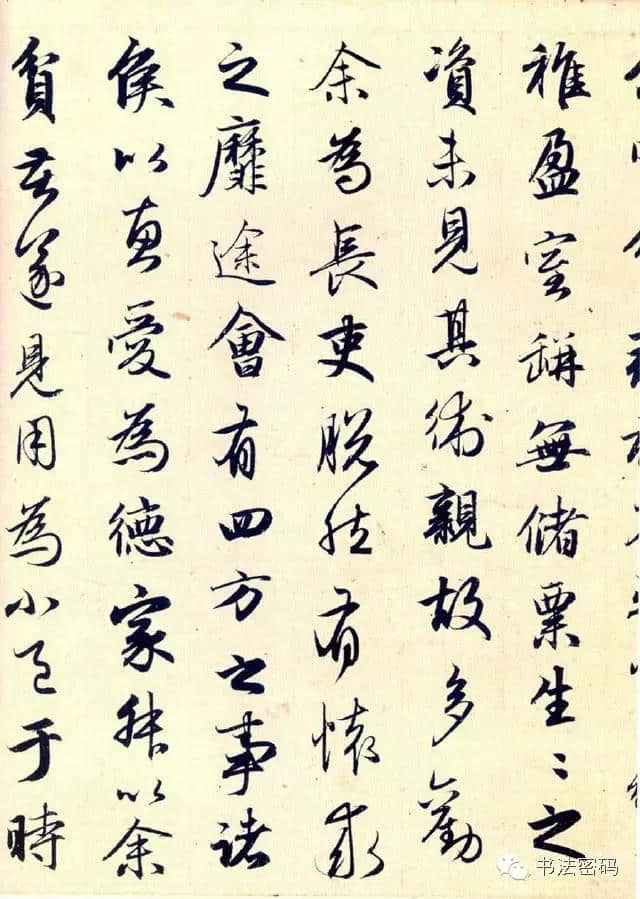 稚盈室缾無儲粟生〻之
資未見其術親故多勸
余為長吏脫然有懷求
之靡途會有四方之事諸
侯以惠愛為德家叔以余
貧苦遂見用為小邑于時
书法密码